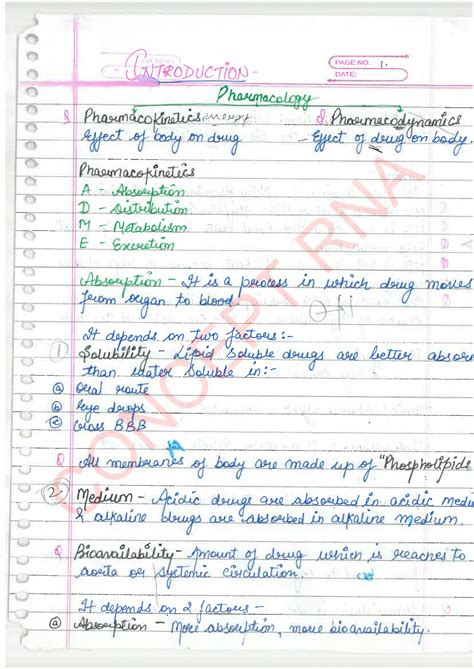 - INTRODUCTION -
PAGE NO. 1.
DATE:
Pharmacology
Pharmacokinetics Pharmacodynamics
Effect of body on drug Effect of drug on body.
Pharmacokinetics
A - Absorption
D - Distribution
M - Metabolism
E - Excretion
Absorption - It is a process in which drug moves
from organ to blood.
It depends on two factors:-
① Solubility - Lipid soluble drugs are better absor
than water soluble in:-
ⓐ Oral route
ⓑ Eye drops
ⓒ Cross BBB
Q All membranes of body are made up of "Phospholipids
②. Medium - Acidic drugs are absorbed in acidic medi
& alkaline drugs are absorbed in alkaline medium.
Q Bioavailability - Amount of drug which is reaches to
aorta or systemic circulation.
It depends on 2 factors -
ⓐ Absorption - More absorption, more bioavailability.
CONCEPT RNA